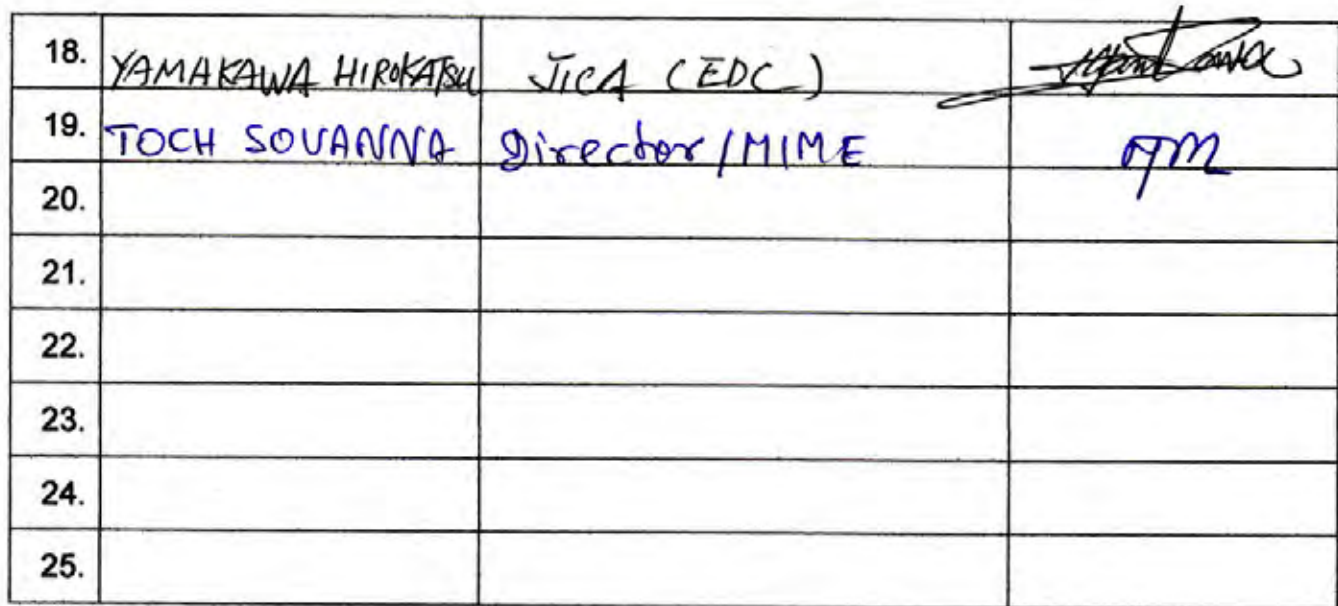 18. YAMAKAWA HIROKATSU JICA (EDC)
19. TOCH SOVANNA Director/MIME
20.
21.
22.
23.
24.
25.